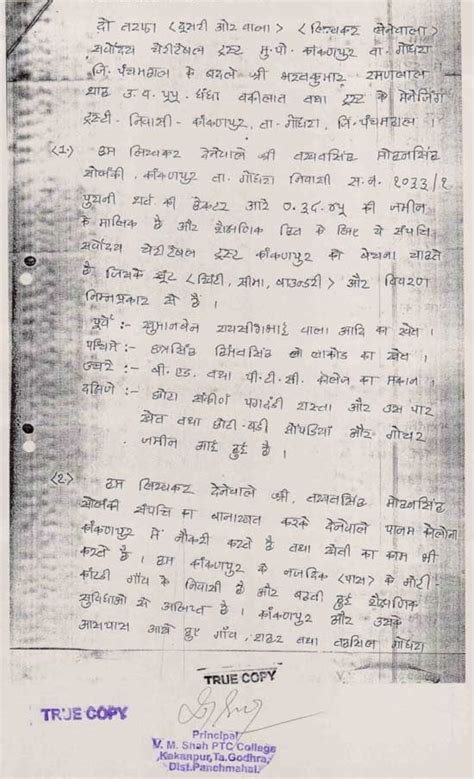 दो तरफा <दूसरी ओर वाला> <लिखकर लेनेवाला>
सर्वोदय चेरीटेबल ट्रस्ट मु.पो. कांकणपुर ता. गोधरा
जि. पंचमहाल के बदले श्री भरतकुमार रमणलाल
शाह उ.व. धंधा वकीलात तथा ट्रस्ट के मेनेजिंग
ट्रस्टी-निवासी-कांकणपुर, ता. गोधरा, जि. पंचमहाल ।
<1.> हम लिखकर देनेवाले श्री तख्तसिंह मोहनसिंह
सोलंकी, कांकणपुर ता. गोधरा निवासी स.न. १०३३/१
पुरानी शर्त की हेक्टर आरे ०.३८.४५ की जमीन
के मालिक है और शैक्षणिक हित के लिए ये संपत्ति
सर्वोदय चेरीटेबल ट्रस्ट कांकणपुर को बेचना चाहते
है जिसके खूंट <खिंटी, सीमा, बाउन्डरी> और विवरण
निम्नप्रकार से है ।
पूर्वे :- सुमानबेन वाला आदि का खेत ।
पश्चिमे :- छत्रसिंह का खेत ।
उत्तरे :- बी.एड. तथा पी.टी.सी. कॉलेज का मकान ।
दक्षिणे :- छोटा संकीर्ण पगदंडी रास्ता और उस पार
खेत तथा छोटी-बडी झोंपडियां और गोचर
जमीन आई हुई है ।
<2.> हम लिखकर देनेवाले श्री, तख्तसिंह मोहनसिंह
सोलंकी संपत्ति का बानाखत करके देनेवाले पानम
कांकणपुर में नौकरी करते है तथा खेती का काम भी
करते है । हम कांकणपुर के नजदिक <पास> के मोटी
कांटडी गाँव के निवासी है और बढती हुई शैक्षणिक
सुविधाओं से है । कांकणपुर और उसके
आसपास आये हुए गाँव, शहर तथा तहसिल गोधरा
TRUE COPY
TRUE COPY
Principal
V. M. Shah PTC College
Kakanpur,Ta.Godhra,
Dist.Panchmahal.